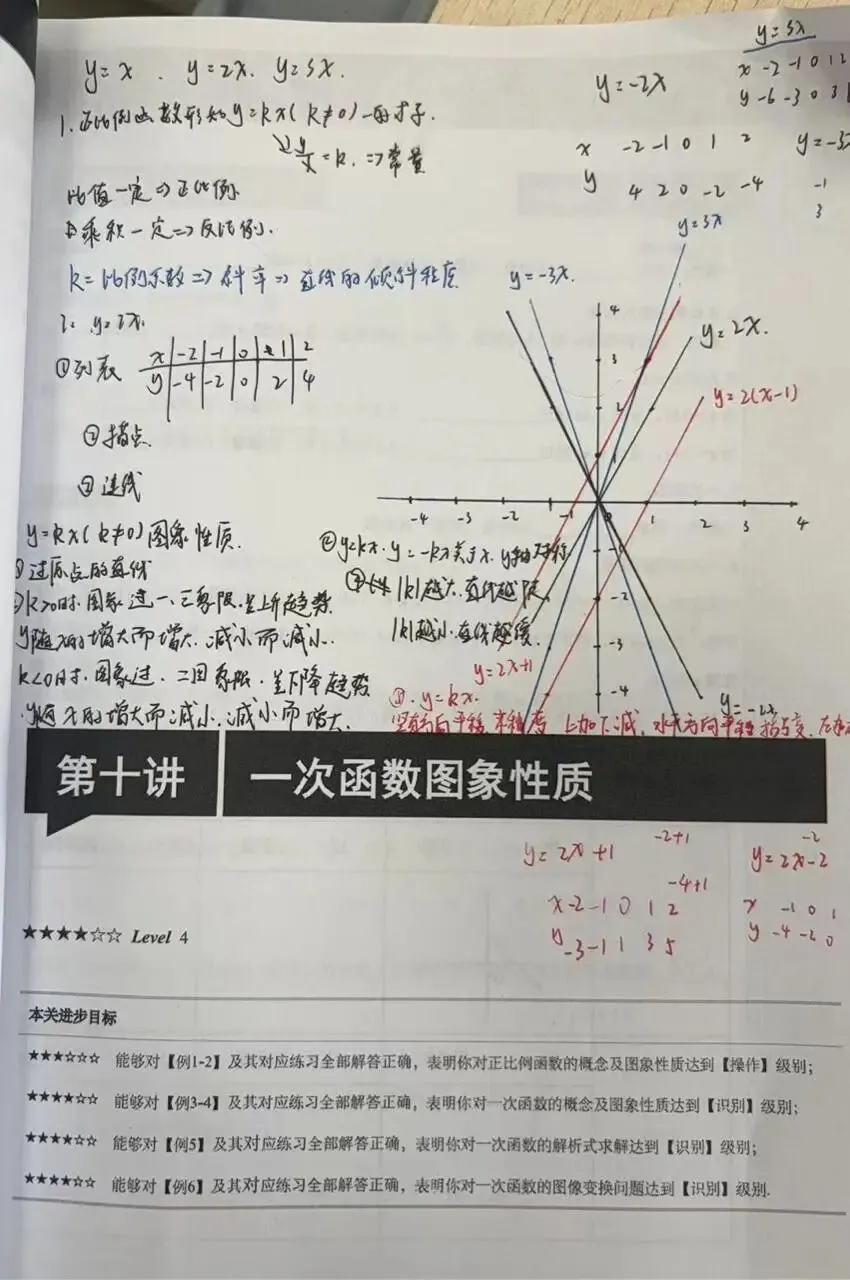 y=x . y=2x. y=3x.
y=3x
x -2 -1 0 1 2
y -6 -3 0 3
y=-2x
x -2 -1 0 1 2
y 4 2 0 -2 -4
y=-3x
-1
3
1.正比例函数形如y=kx(k≠0)的式子.
y/x=k.⇒常量
比值一定⇒正比例.
乘积一定⇒反比例.
k=比例系数⇒斜率⇒直线的倾斜程度
y=2x.
①列表
x -2 -1 0 1 2
y -4 -2 0 2 4
②描点.
③连线
y=3x
y=-3x.
y=2x.
y=2(x-1)
4
3
2
1
-4 -3 -2 -1 0 1 2 3 4
-1
-2
-3
-4
y=2x+1
y=-2x
y=kx(k≠0)图象性质.
①过原点的直线
②k>0时.图象过一、三象限.呈上升趋势
y随x的增大而增大.减小而减小.
k<0时.图象过.二四象限.呈下降趋势
y随x的增大而减小.减小而增大.
②y=kx.y=-kx关于x.y轴对称
|k|越大.直线越陡
|k|越小.直线越缓
③.y=kx.
竖直方向平移 上加下减,水平方向平移
第十讲 一次函数图象性质
y=2x+1
-2+1
-4+1
x -2 -1 0 1 2
y -3 -1 1 3 5
-2
y=2x-2
x -1 0 1
y -4 -2 0
★★★★☆☆ Level 4
本关进步目标
★★★☆☆☆ 能够对【例1-2】及其对应练习全部解答正确，表明你对正比例函数的概念及图象性质达到【操作】级别；
★★★★☆☆ 能够对【例3-4】及其对应练习全部解答正确，表明你对一次函数的概念及图象性质达到【识别】级别；
★★★★☆☆ 能够对【例5】及其对应练习全部解答正确，表明你对一次函数的解析式求解达到【识别】级别；
★★★★☆☆ 能够对【例6】及其对应练习全部解答正确，表明你对一次函数的图像变换问题达到【识别】级别.